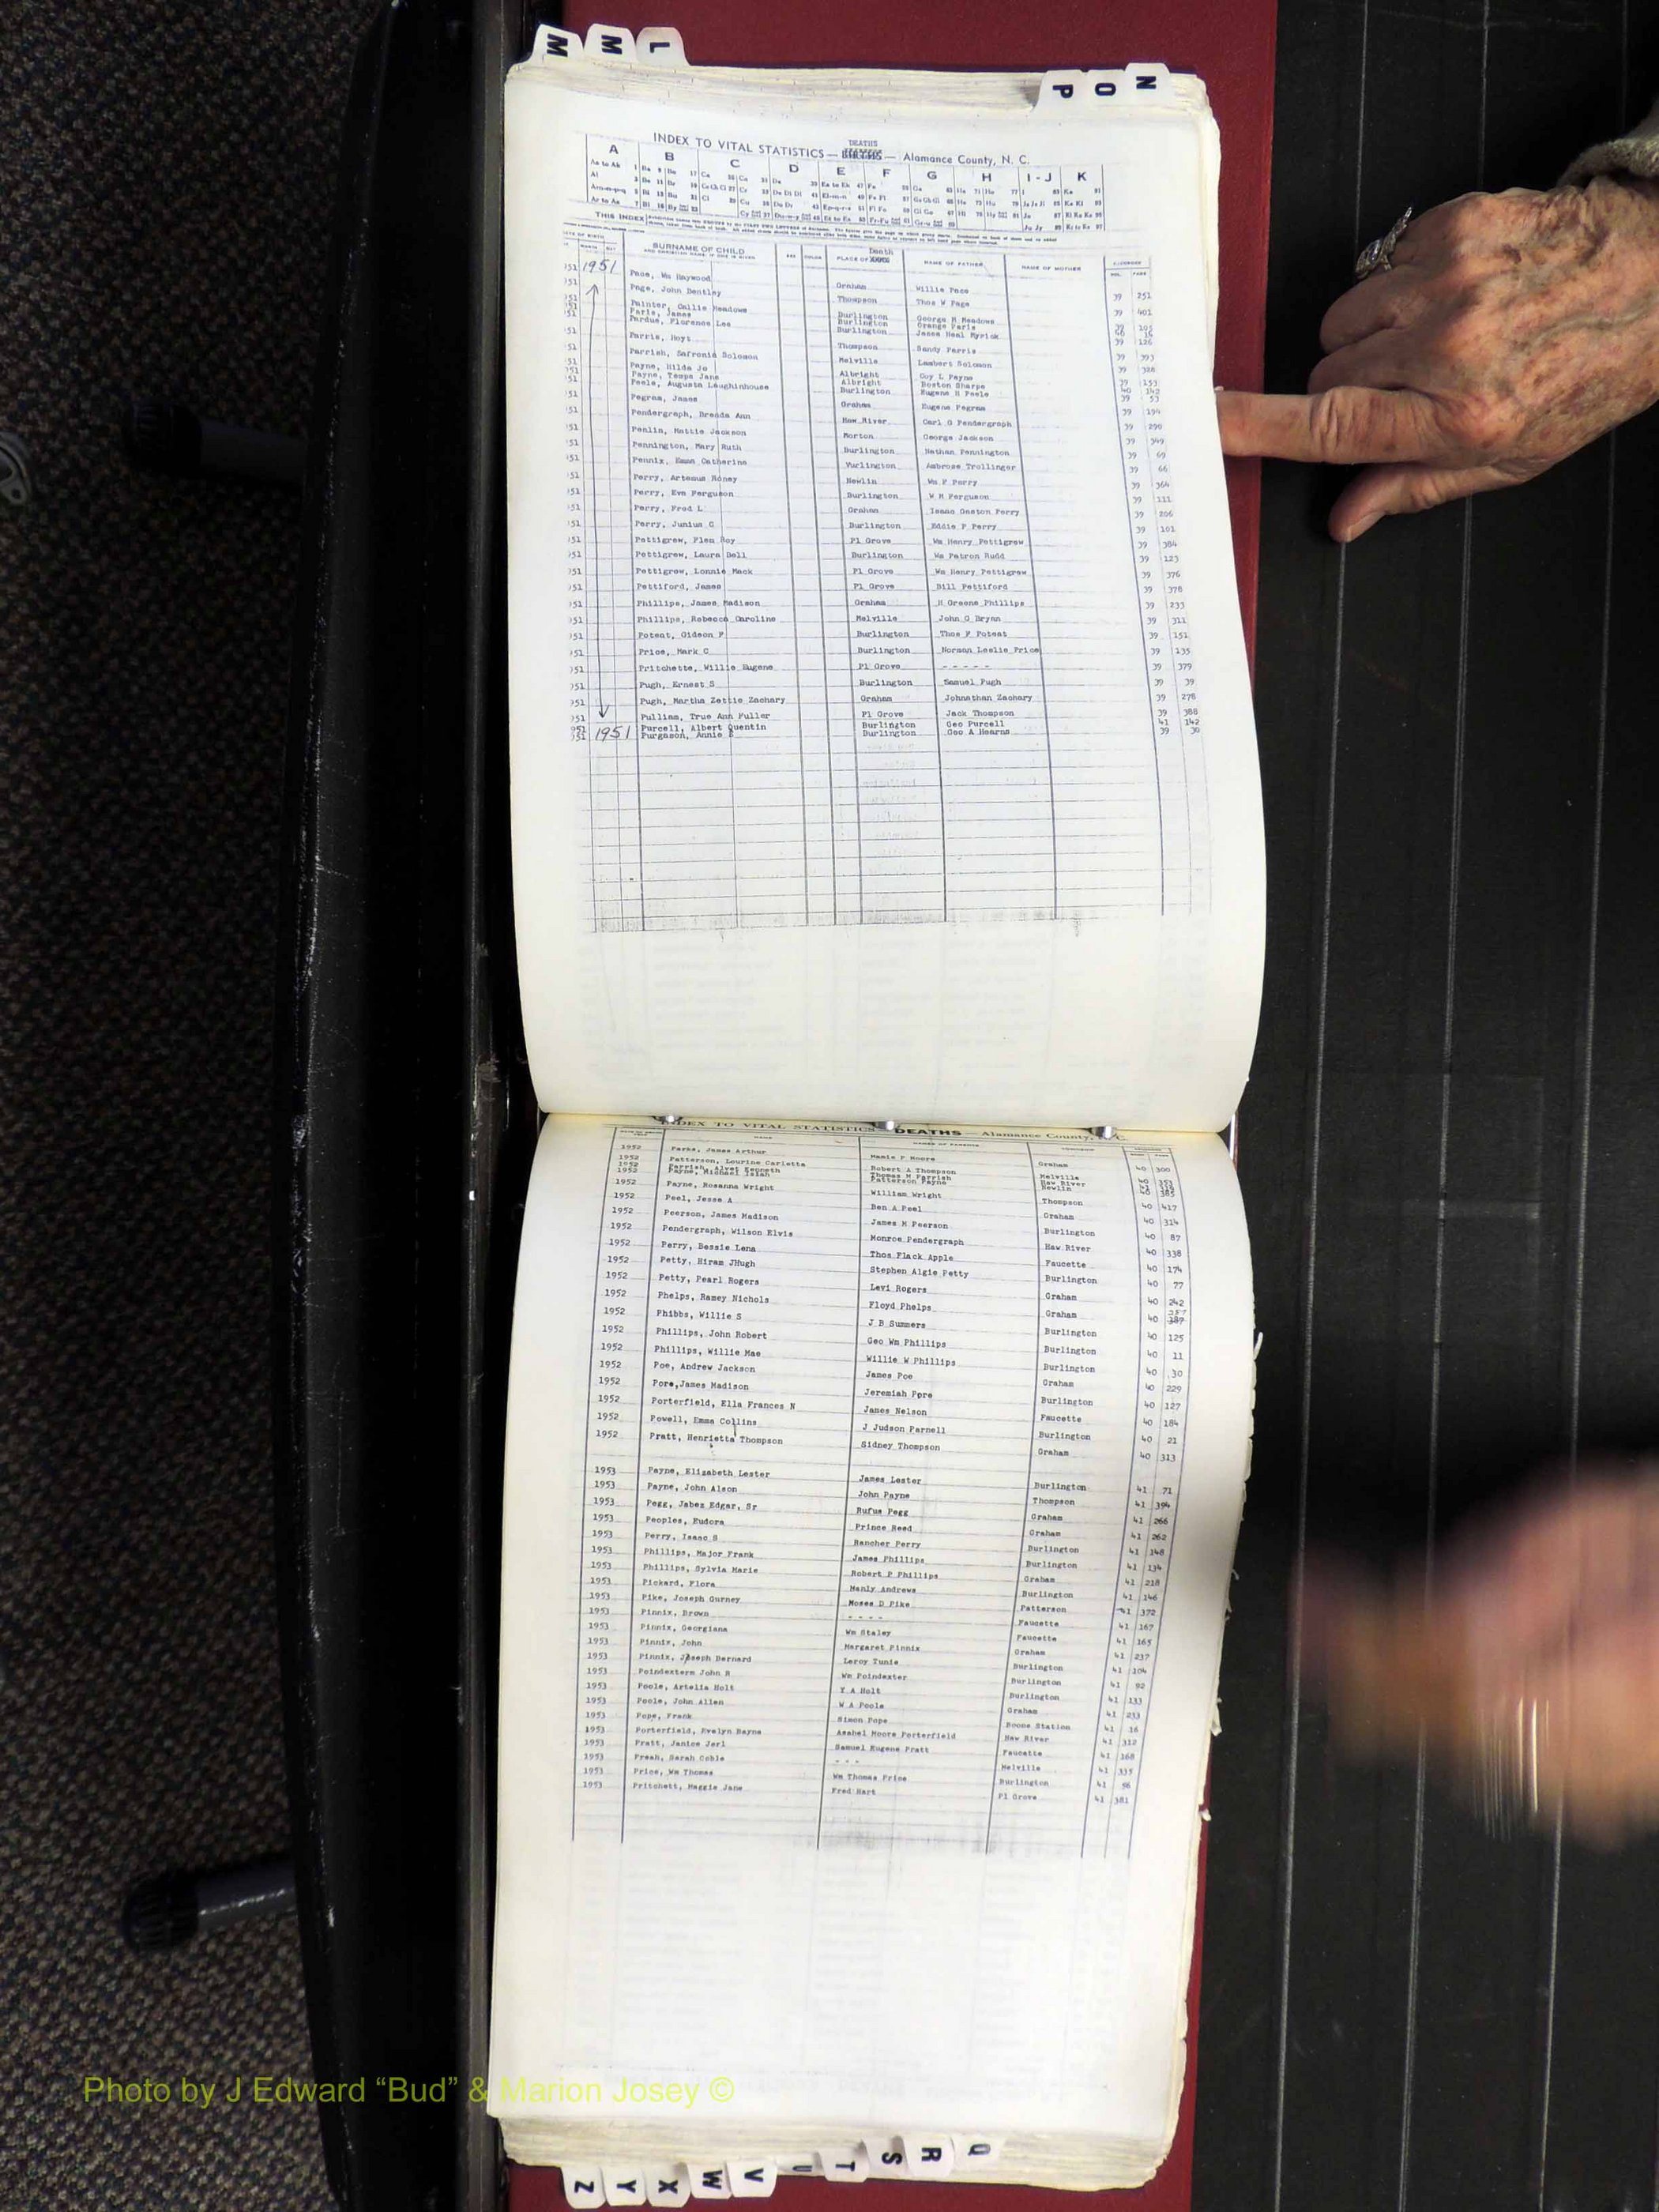 M M L
P O N
INDEX TO VITAL STATISTICS — DEATHS — Alamance County, N. C.
A B C D E F G H I - J K
THIS INDEX
SURNAME OF CHILD PLACE OF Death NAME OF FATHER NAME OF MOTHER
1951 Pace, Wm Haywood Graham Willie Pace 39 251
Page, John Bentley Thompson Thos W Page 39 401
Painter, Callie Meadows Burlington George M Meadows 39 105
Paris, James Burlington Orange Paris
Pardue, Florence Lee Burlington James Neal Myrick 39 126
Parris, Hoyt Thompson Sandy Parris 39 393
Parrish, Safronia Solomon Melville Lambert Solomon 39 328
Payne, Hilda Jo Albright Guy L Payne 39 153
Payne, Tempa Jane Albright Boston Sharpe 40 142
Peele, Augusta Laughinhouse Burlington Eugene H Peele 39 53
Pegram, James Graham Eugene Pegram 39 194
Pendergraph, Brenda Ann Haw River Carl G Pendergraph 39 290
Penlin, Mattie Jackson Morton George Jackson 39 349
Pennington, Mary Ruth Burlington Nathan Pennington 39 69
Pennix, Emma Catherine Vurlington Ambrose Trollinger 39 66
Perry, Artemus Roney Newlin Wm P Perry 39 364
Perry, Eva Ferguson Burlington W H Ferguson 39 111
Perry, Fred L Graham Isaac Gaston Perry 39 206
Perry, Junius G Burlington Eddie P Perry 39 101
Pettigrew, Flem Roy Pl Grove Wm Henry Pettigrew 39 384
Pettigrew, Laura Bell Burlington Wm Patron Rudd 39 123
Pettigrew, Lonnie Mack Pl Grove Wm Henry Pettigrew 39 376
Pettiford, James Pl Grove Bill Pettiford 39 378
Phillips, James Madison Graham H Greene Phillips 39 233
Phillips, Rebecca Caroline Melville John G Bryan 39 311
Poteat, Gideon P Burlington Thos F Poteat 39 151
Price, Mark C Burlington Norman Leslie Price 39 135
Pritchette, Willie Eugene Pl Grove - - - - - 39 379
Pugh, Ernest S Burlington Samuel Pugh 39 39
Pugh, Martha Zettie Zachary Graham Johnathan Zachary 39 278
Pulliam, True Ann Fuller Pl Grove Jack Thompson 39 388
Purcell, Albert Quentin Burlington Geo Purcell 41 142
1951 Purgason, Annie Burlington Geo A Hearns 39 30
INDEX TO VITAL STATISTICS — DEATHS — Alamance County, N. C.
1952 Parks, James Arthur Mamie P Moore Graham 40 300
1952 Patterson, Lourine Carletta Robert A Thompson Melville
1952 Parrish, Alvet Kenneth Thomas M Parrish Haw River
1952 Payne, Michael Isiah Patterson Payne Newlin
1952 Payne, Rosanna Wright William Wright Thompson 40 417
1952 Peel, Jesse A Ben A Peel Graham 40 314
1952 Peerson, James Madison James M Peerson Burlington 40 87
1952 Pendergraph, Wilson Elvis Monroe Pendergraph Haw River 40 338
1952 Perry, Bessie Lena Thos Flack Apple Faucette 40 174
1952 Petty, Hiram JHugh Stephen Algie Petty Burlington 40 77
1952 Petty, Pearl Rogers Levi Rogers Graham 40 242
1952 Phelps, Ramey Nichols Floyd Phelps Graham 40 387
1952 Phibbs, Willie S J B Summers Burlington 40 125
1952 Phillips, John Robert Geo Wm Phillips Burlington 40 11
1952 Phillips, Willie Mae Willie W Phillips Burlington 40 30
1952 Poe, Andrew Jackson James Poe Graham 40 229
1952 Pore,James Madison Jeremiah Pore Burlington 40 127
1952 Porterfield, Ella Frances N James Nelson Faucette 40 184
1952 Powell, Emma Collins J Judson Parnell Burlington 40 21
1952 Pratt, Henrietta Thompson Sidney Thompson Graham 40 313
1953 Payne, Elizabeth Lester James Lester Burlington 41 71
1953 Payne, John Alson John Payne Thompson 41 394
1953 Pegg, Jabez Edgar, Sr Rufus Pegg Graham 41 266
1953 Peoples, Eudora Prince Reed Graham 41 262
1953 Perry, Isaac S Rancher Perry Burlington 41 148
1953 Phillips, Major Frank James Phillips Burlington 41 134
1953 Phillips, Sylvia Marie Robert P Phillips Graham 41 218
1953 Pickard, Flora Manly Andrews Burlington 41 146
1953 Pike, Joseph Gurney Moses D Pike Patterson 41 372
1953 Pinnix, Brown - - - - Faucette 41 167
1953 Pinnix, Georgiana Wm Staley Faucette 41 165
1953 Pinnix, John Margaret Pinnix Graham 41 237
1953 Pinnix, Joseph Bernard Leroy Tunie Burlington 41 104
1953 Poindexterm John R Wm Poindexter Burlington 41 92
1953 Poole, Artelia Holt T A Holt Burlington 41 133
1953 Poole, John Allen W A Poole Graham 41 233
1953 Pope, Frank Simon Pope Boone Station 41 16
1953 Porterfield, Evelyn Bayne Asahel Moore Porterfield Haw River 41 312
1953 Pratt, Janice Jerl Samuel Eugene Pratt Faucette 41 168
1953 Preah, Sarah Coble - - - Melville 41 335
1953 Price, Wm Thomas Wm Thomas Price Burlington 41 56
1953 Pritchett, Maggie Jane Fred Hart Pl Grove 41 381
Photo by J Edward “Bud” & Marion Josey ©
Z Y X W V U T S R Q